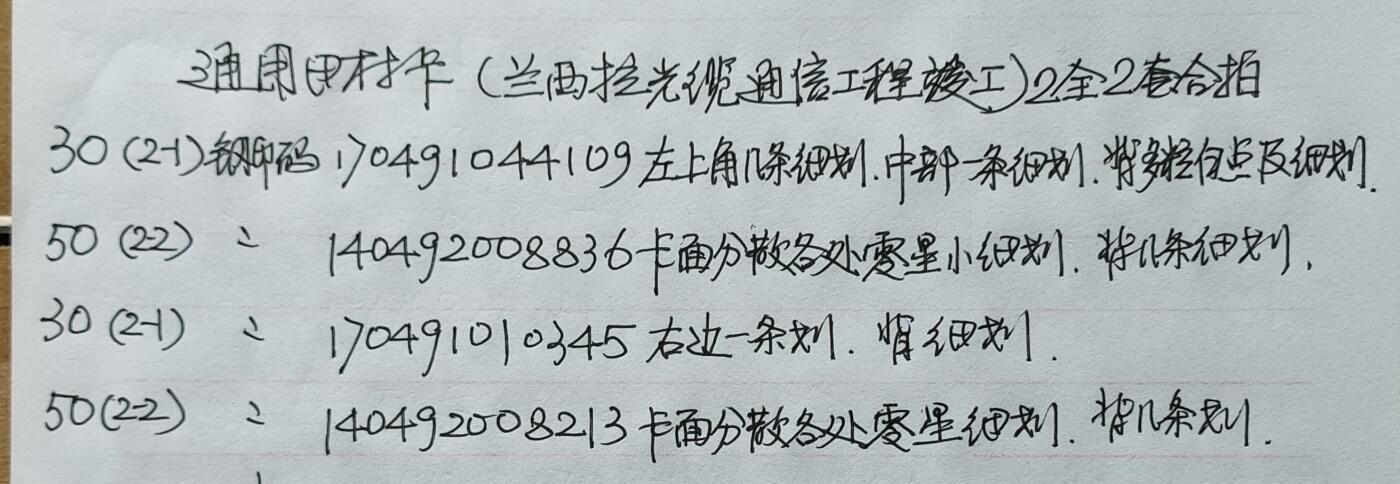 通用田村卡（兰西拉光缆通信工程竣工）2全2套合拍
30 (2-1) 钢印码 170491044109 左上角几条细划.中部一条细划.背多粒白点及细划.
50 (2-2) 〃 140492008836 卡面分散各处零星小细划.背几条细划.
30 (2-1) 〃 170491010345 右边一条划.背细划.
50 (2-2) 〃 140492008213 卡面分散各处零星细划.背几条划.